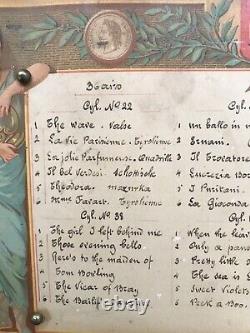 36 airs
Cyl. Nº 22
1 The wave. Valse
2 La Vie Parisienne. Tyrolienne
3 La jolie Parfumeuse. Quadrille
4 Il bel Verdesi. Schottisch
5 Theodora. mazurka
6 Mme Favart. Tyrolienne
Cyl. Nº 38
1 The girl I left behind me
2 Those evening bells
3 Here's to the maiden of
4 Tom Bowling
5 The Vicar of Bray
6 The Bailiff's
Cyl.
1 Un ballo in
2 Ernani.
3 Il Trovatore
4 Lucrezia Bor
5 I Puritani
6 La Gioconda
1 When the leav
2 Only a pans
3 Pretty little
4 The sea is E
5 Sweet Violets
6 Peek a Boo.
worthpoint